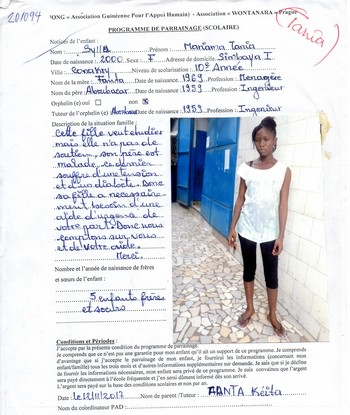 201094
PONG « Association Guinéenne Pour l'Appel Humain) - Association « WONTANARA » Prague
Tania
PROGRAMME DE PARRAINAGE (SCOLAIRE)
Notices de l'enfant :
Nom : Sylla Prénom : Mariama Tania
Date de naissance : 2000 Sexe : F Adresse de domicile : Simbaya I
Ville : Conakry Niveau de scolarisation : 10e Année
Nom de la mère : Fanta Date de naissance : 1969 Profession : Menagère
Nom du père Aboubacar Date de naissance : 1959 Profession : Ingenieur
Orphelin (e) oui non
Tuteur de l'orphelin (e) Date de naissance : 1959 Profession : Ingenieur
Description de la situation famille :
Cette fille veut étudier
mais elle n'a pas de
soutien, son père est
malade, ce dernier
souffre d'une tension
et d'un diabète. Donc
sa fille a necessaire
ment besoin d'une
aide d'urgence de
votre part. Donc nous
comptons sur vous
et de votre aide.
Merci.
Nombre et l'année de naissance de frères
et sœurs de l'enfant :
5 enfants frères
et soeurs
Conditions et Périodes :
J'accepte par la présente condition du programme de parrainage.
Je comprends que ce n'est pas une garantie pour mon enfant qu'il ait un support de ce programme. Je comprends
d'avantage que si j'accepte le parrainage de mon enfant, je fournirai les informations (concernant mon
enfant/famille) tous les trois mois et d'autres informations supplémentaires sur demande. Je sais que si je décline
de fournir les informations nécessaires, mon enfant sera privé de ce programme. Je suis convaincu que l'argent
sera payé directement à l'école fréquentée et j'en serai dûment informé dès son arrivé.
L'argent sera payé sur la base des conditions scolaires et non par an.
Date : le 12/11/2017 Nom de parent /Tuteur : FANTA Keita
Nom du coordinateur PAD :